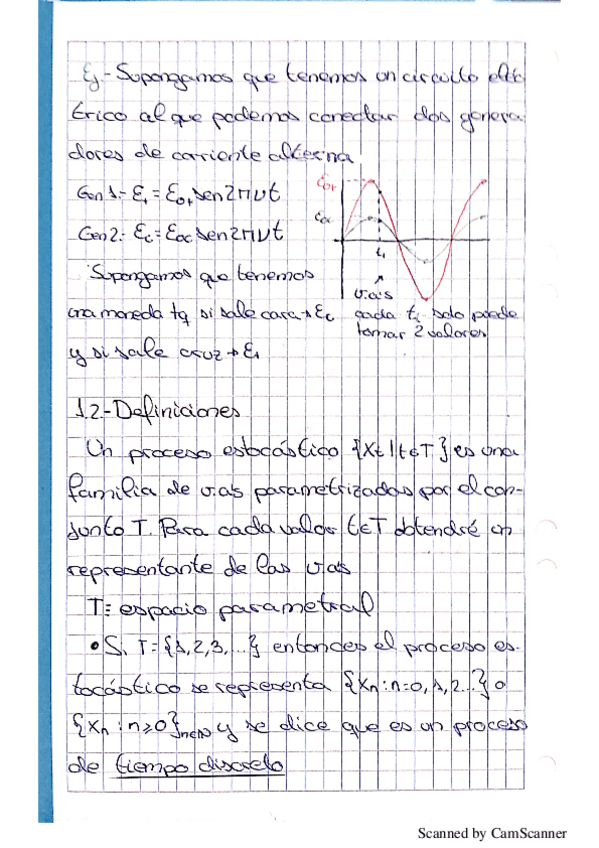 Ej.- Supongamos que tenemos un circuito eléc-
trico al que podemos conectar dos genera
dores de corriente alterna
Gen 1:- E₁ = E₀₁ sen2πνt
Gen 2: E_c = E_0c sen2πνt
E₀₁
E_0c
t₁
Supongamos que tenemos
una moneda tq si sale cara → E_c
y si sale cruz → E₁
v.a's
cada tᵢ solo puede
tomar 2 valores
1.2.- Definiciones
Un proceso estocástico {Xt | t∈T} es una
familia de v.a's parametrizadas por el con-
junto T. Para cada valor t∈T obtendré un
representante de las v.a's
T ≡ espacio parametral
• Si T = {1,2,3,...} entonces el proceso es-
tocástico se representa {Xn : n=0,1,2...} o
{Xn : n≥0}n∈N y se dice que es un proceso
de tiempo discreto
Scanned by CamScanner